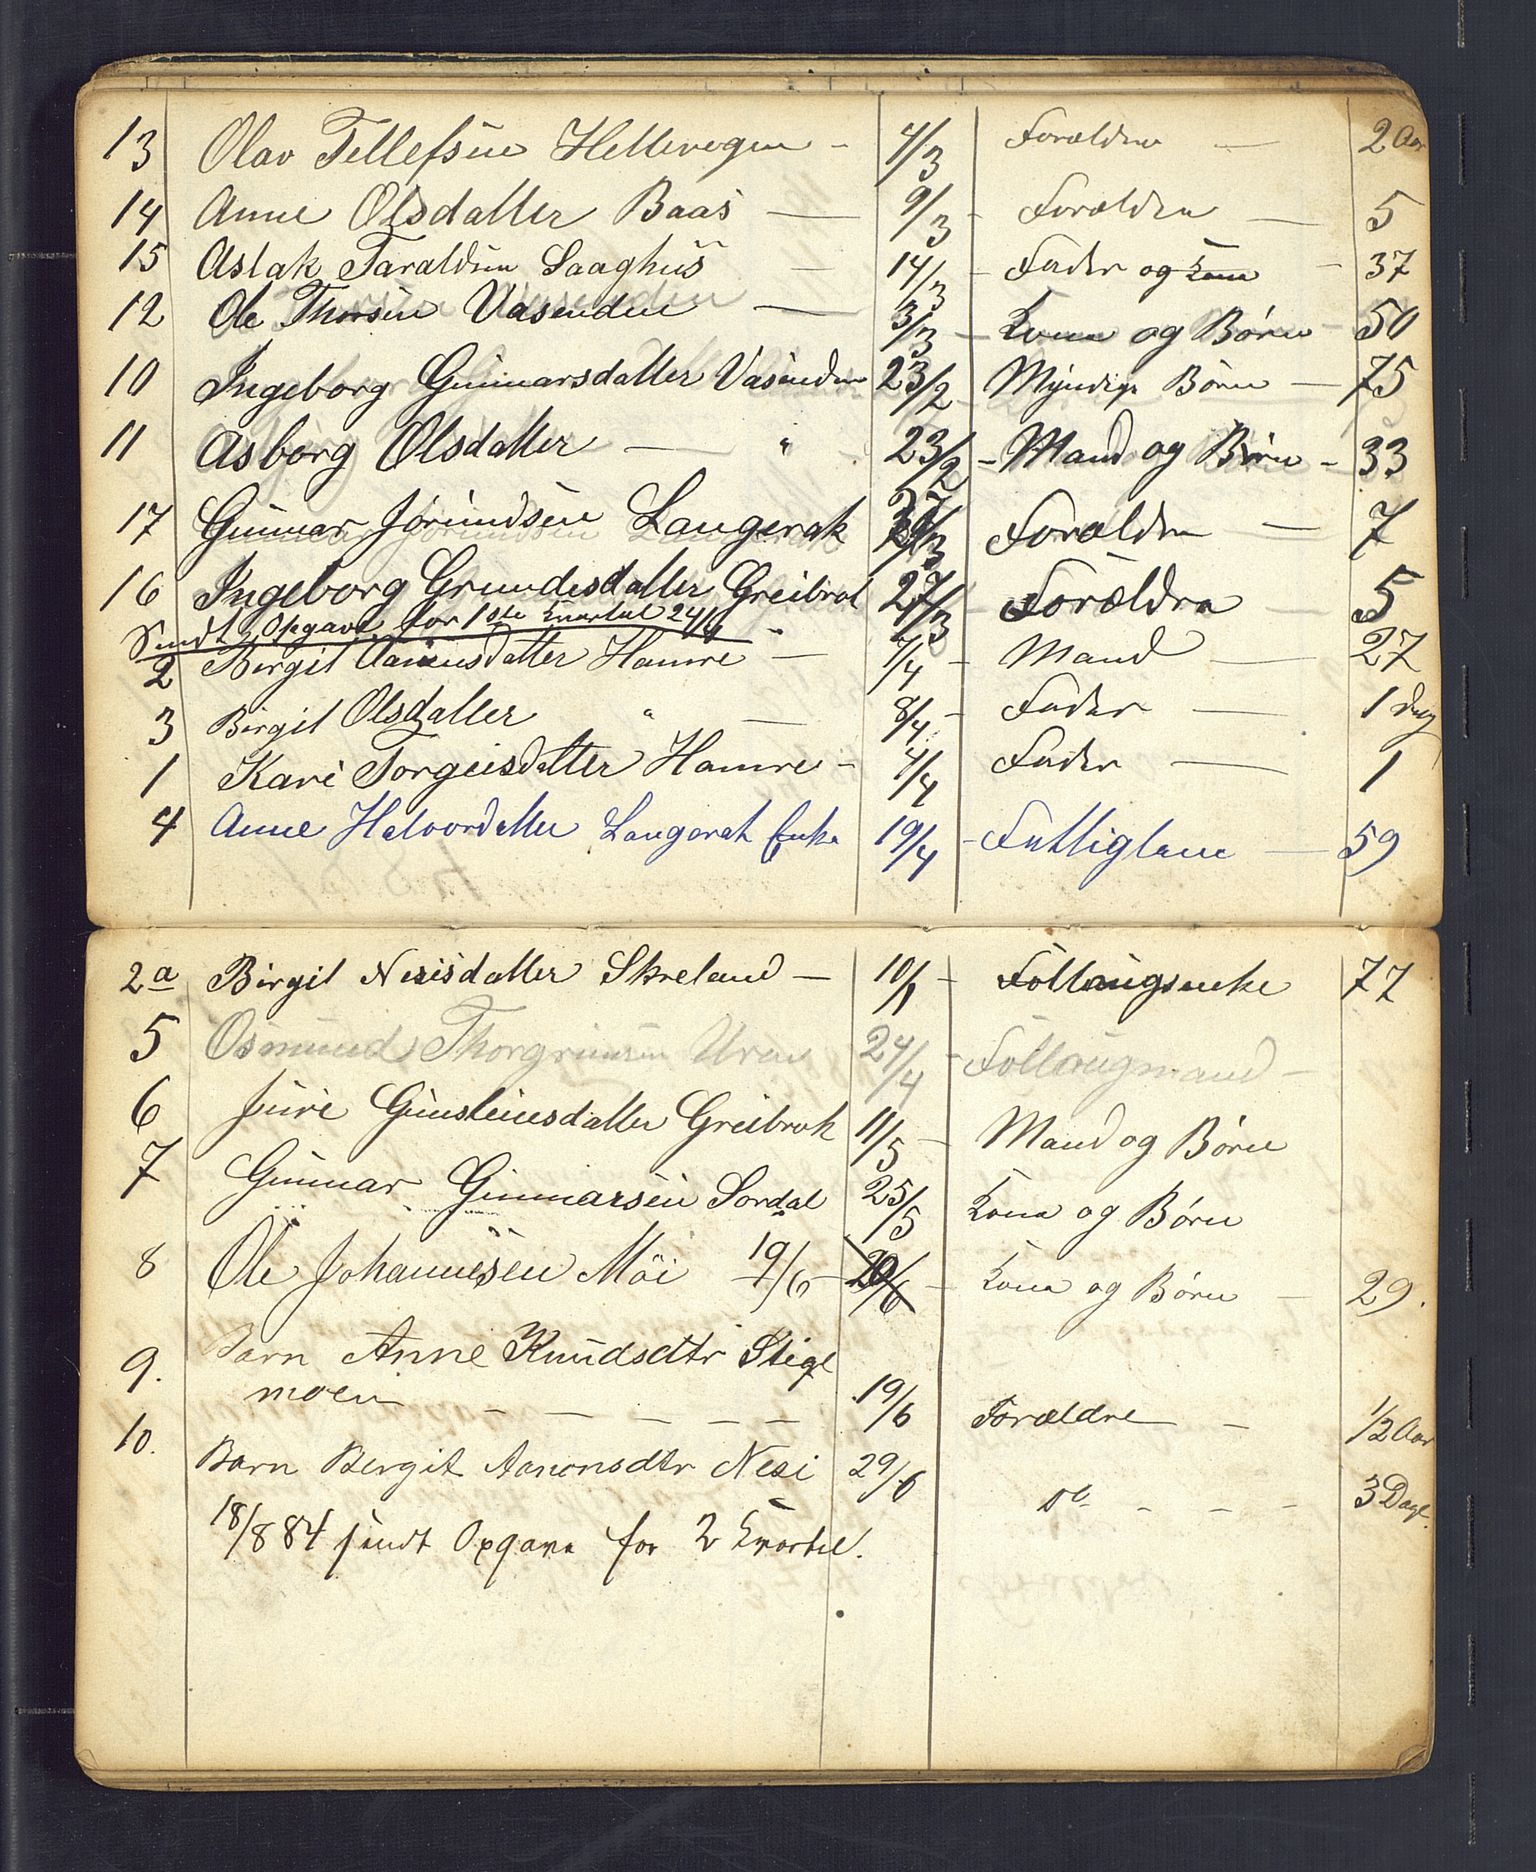 13 Olav Tellefsen Hellevegen - 4/3 Forældre — 2 Aar
14 Anne Olsdatter Baas — 9/3 - Forældre — 5
15 Aslak Taraldsen Saaghus — 14/3 - Fader og Kone - 37
12 Ole Thorsen Vasenden — 3/3 - Kone og Børn - 50
10 Ingeborg Gunnarsdatter Vasenden 23/2 Myndige Børn — 75
11 Asborg Olsdatter — " 23/2 - Mand og Børn - 33
17 Gunnar Jorundsen Langerak 27/3 Forældre — 7
16 Ingeborg Grundesdatter Greibrok 27/3 - Forældre — 5
Sendt Opgave for 1ste Kvartal 24/4
2 Birgit Aanensdatter Hamre — 7/4 - Mand — 27
3 Birgit Olsdatter " — 8/4 - Fader — 1 Dag
1 Kari Torgeisdatter Hamre - 4/4 Fader — 1
4 Anne Halvordatter Langerak Enke 19/4 - Fattiglem — 59
2a Birgit Neridsdatter Skreland — 10/1 - Follaugsenke 77
5 Osmund Thorgrimsen Uren 24/4 - Follaugmand -
6 Jure Gunsteinsdatter Greibrok 11/5 - Mand og Børn
7 Gunnar Gunnarsen Sordal 25/5 Kone og Børn
8 Ole Johannesen Moi 19/6 - 20/6 - Kone og Børn - 29.
9. Barn Anne Knudsdtr Stige
moen - - - - - - 19/6 Forældre - - 1/2 Aar
10. Barn Bergit Aanonsdtr Nesi 29/6 do - - - 3 Dage.
18/8 84 sendt Opgave for 2 Kvartal.